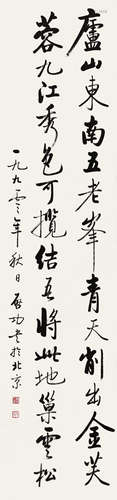 廬山東南五老峯青天削出金芙
蓉九江秀色可攬結吾將此地巢雲松
一九九零年秋日啟功書於北京